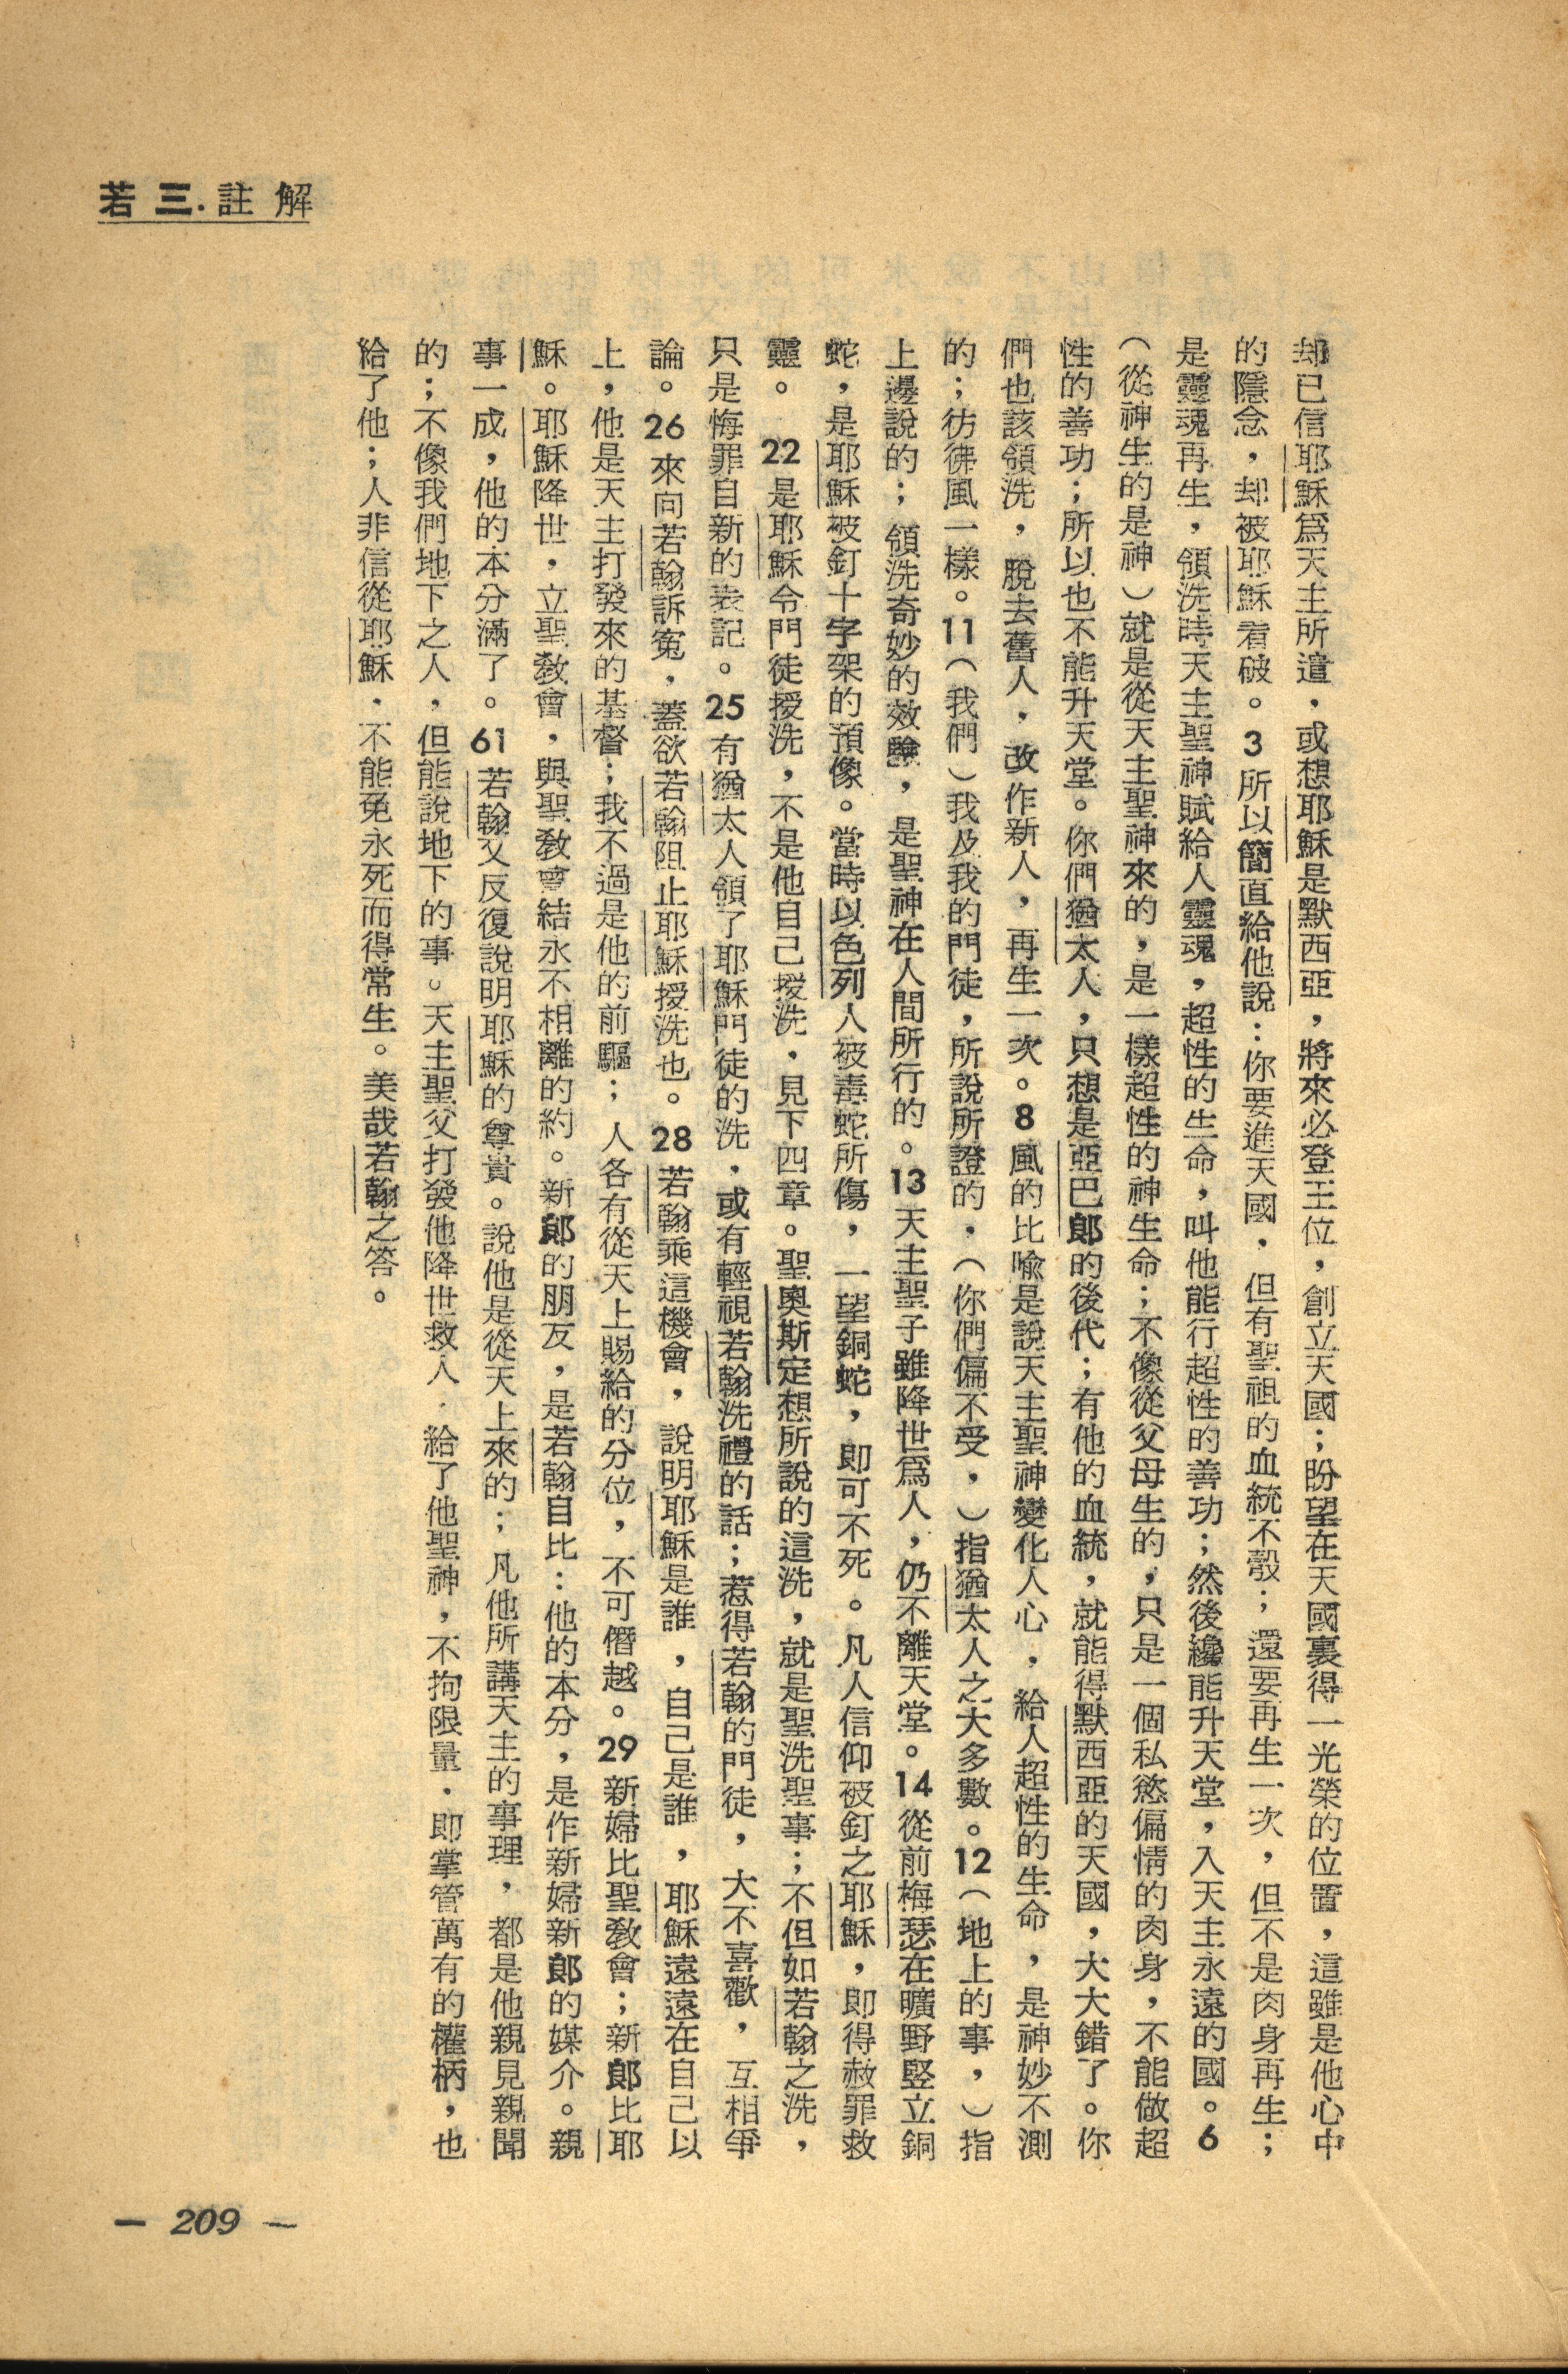 若三．註解
却已信耶穌爲天主所遣，或想耶穌是默西亞，將來必登王位，創立天國；盼望在天國裏得一光榮的位置，這雖是他心中
的隱念，却被耶穌看破。3 所以簡直給他說：你要進天國，但有聖祖的血統不彀；還要再生一次，但不是肉身再生；
是靈魂再生，領洗時天主聖神賦給人靈魂，超性的生命，叫他能行超性的善功；然後纔能升天堂，入天主永遠的國。6
（從神生的是神）就是從天主聖神來的，是一樣超性的神生命；不像從父母生的，只是一個私慾偏情的肉身，不能做超
性的善功；所以也不能升天堂。你們猶太人，只想是亞巴郎的後代；有他的血統，就能得默西亞的天國，大大錯了。你
們也該領洗，脫去舊人，改作新人，再生一次。8 風的比喩是說天主聖神變化人心，給人超性的生命，是神妙不測
的；彷彿風一樣。11（我們）我及我的門徒，所說所證的，（你們偏不受，）指猶太人之大多數。12（地上的事，）指
上邊說的；領洗奇妙的效驗，是聖神在人間所行的。13 天主聖子雖降世爲人，仍不離天堂。14 從前梅瑟在曠野竪立銅
蛇，是耶穌被釘十字架的預像。當時以色列人被毒蛇所傷，一望銅蛇，即可不死。凡人信仰被釘之耶穌，即得赦罪救
靈。22 是耶穌令門徒授洗，不是他自己授洗，見下四章。聖奧斯定想所說的這洗，就是聖洗聖事；不但如若翰之洗，
只是悔罪自新的表記。25 有猶太人領了耶穌門徒的洗，或有輕視若翰洗禮的話；惹得若翰的門徒，大不喜歡，互相爭
論。26 來向若翰訴寃，蓋欲若翰阻止耶穌授洗也。28 若翰乘這機會，說明耶穌是誰，自己是誰，耶穌遠遠在自己以
上，他是天主打發來的基督；我不過是他的前驅；人各有從天上賜給的分位，不可僭越。29 新婦比聖敎會；新郎比耶
穌。耶穌降世，立聖敎會，與聖敎會結永不相離的約。新郎的朋友，是若翰自比：他的本分，是作新婦新郎的媒介。親
事一成，他的本分滿了。61 若翰又反復說明耶穌的尊貴。說他是從天上來的；凡他所講天主的事理，都是他親見親聞
的；不像我們地下之人，但能說地下的事。天主聖父打發他降世救人，給了他聖神，不拘限量．即掌管萬有的權柄，也
給了他；人非信從耶穌，不能免永死而得常生。美哉若翰之答。
— 209 —